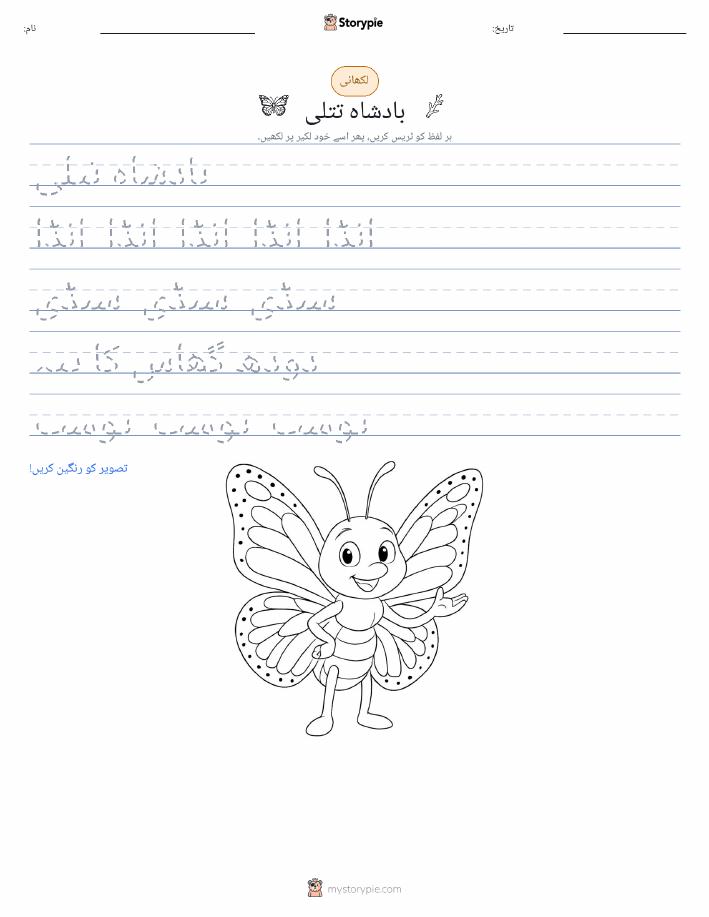 نام:
Storypie
تاریخ:
لکھائی
بادشاہ تتلی
ہر لفظ کو ٹریس کریں، پھر اسے خود لکیر پر لکھیں۔
بادشاہ تتلی
انڈا انڈا انڈا انڈا انڈا
سنڈی سنڈی سنڈی
دودھ گھاس کا
تصویر کو رنگین کریں!
mystorypie.com